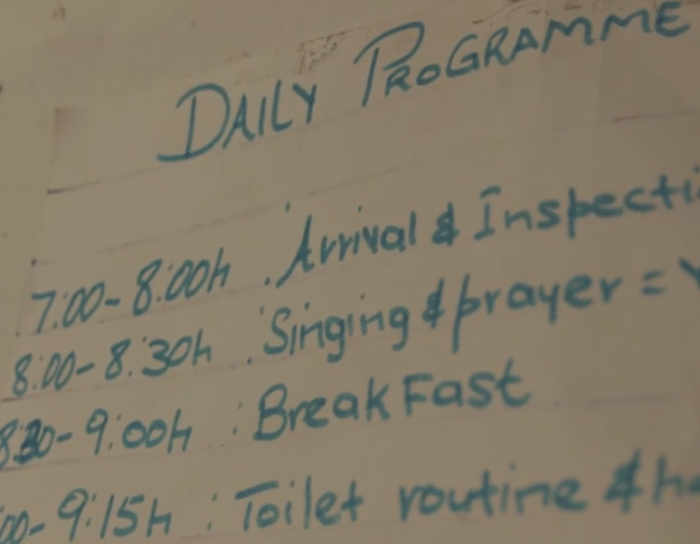 DAILY PROGRAMME
7:00-8:00h : Arrival & Inspecti
8:00-8:30h : Singing & prayer =
8:30-9:00h : BreakFast
00-9:15h : Toilet routine & ha